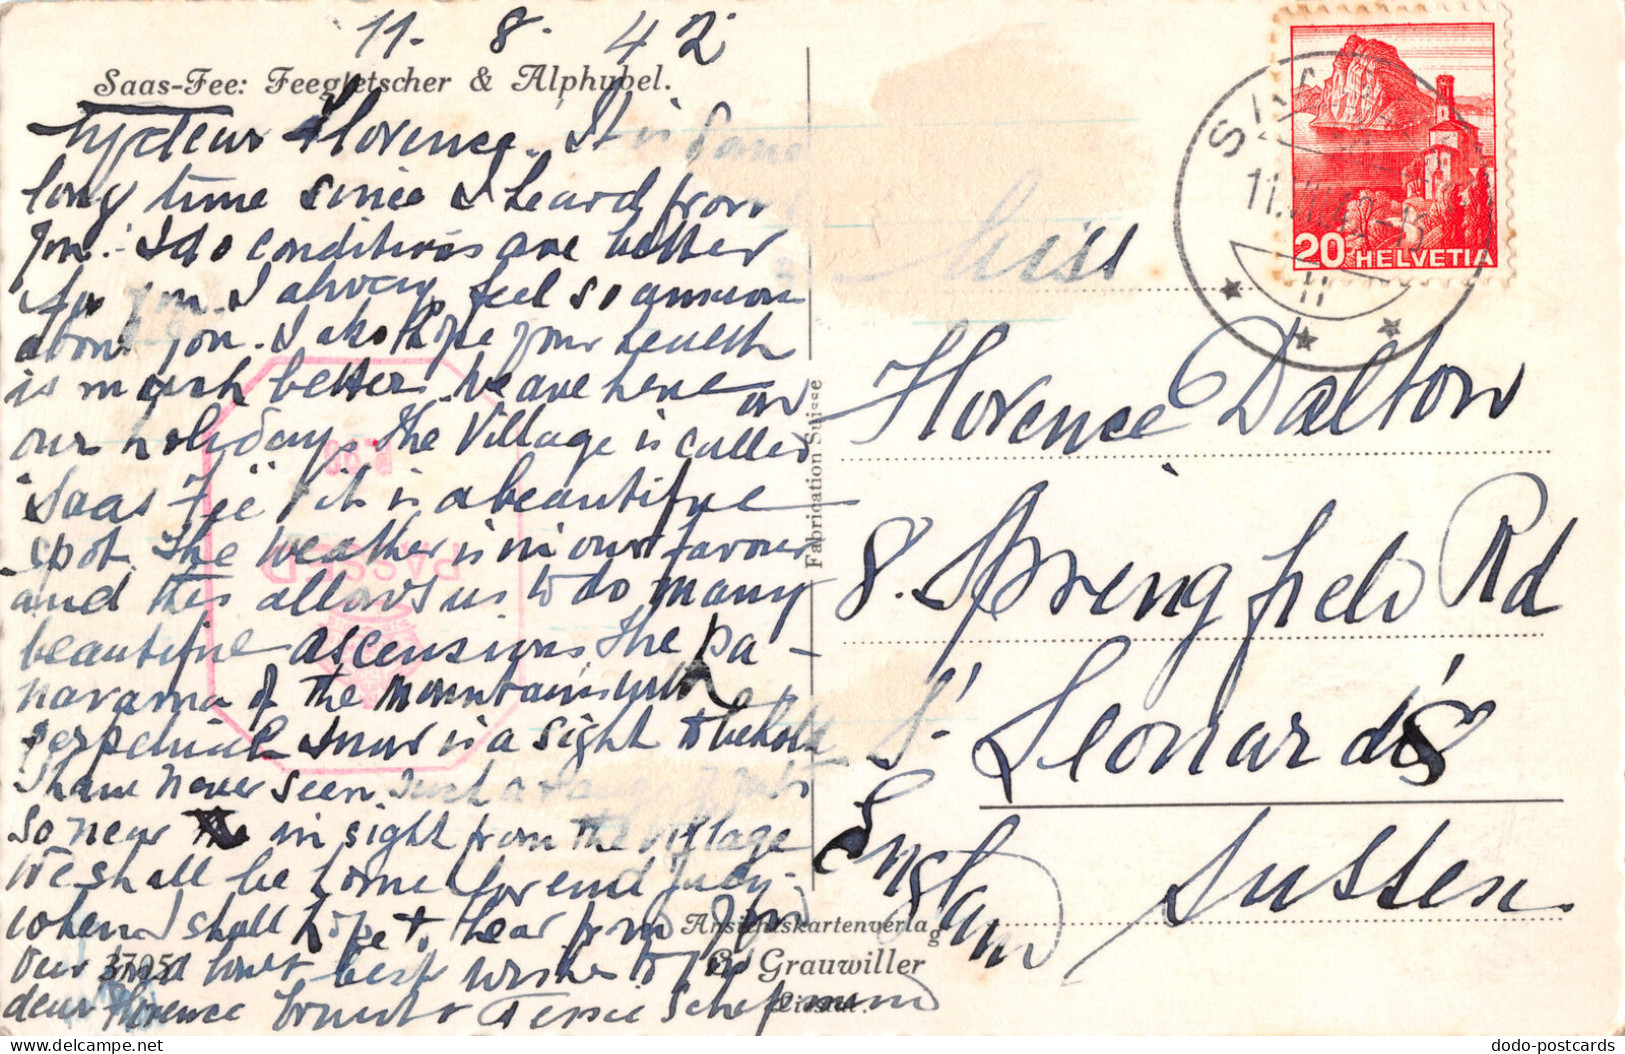 11. 8. 42
Saas-Fee: Feegletscher & Alphubel.
Florence. It is
long time since I heard from
you. I do conditions are better
for you. I always feel so anxious
about you. I also hope your health
is much better. We are here on
our holidays. The Village is called
"Saas Fee" it is a beautiful
spot. The weather is in our favour
and this allows us to do many
beautiful ascensions. The pa-
norama of the mountains with
snow is a sight to behold
I have never seen. Such a
so near in sight from the village
We shall be home for end July.
when I shall hope to hear from you
best wishes to you
dear Florence
Fabrication Suisse
PASSED
37051
Ansichtskartenverlag
G. Grauwiller
Liestal.
SAAS-FEE
20 HELVETIA
Miss
Florence Dalton
8. Springfield Rd
St Leonards
Sussex
England
dodo-postcards